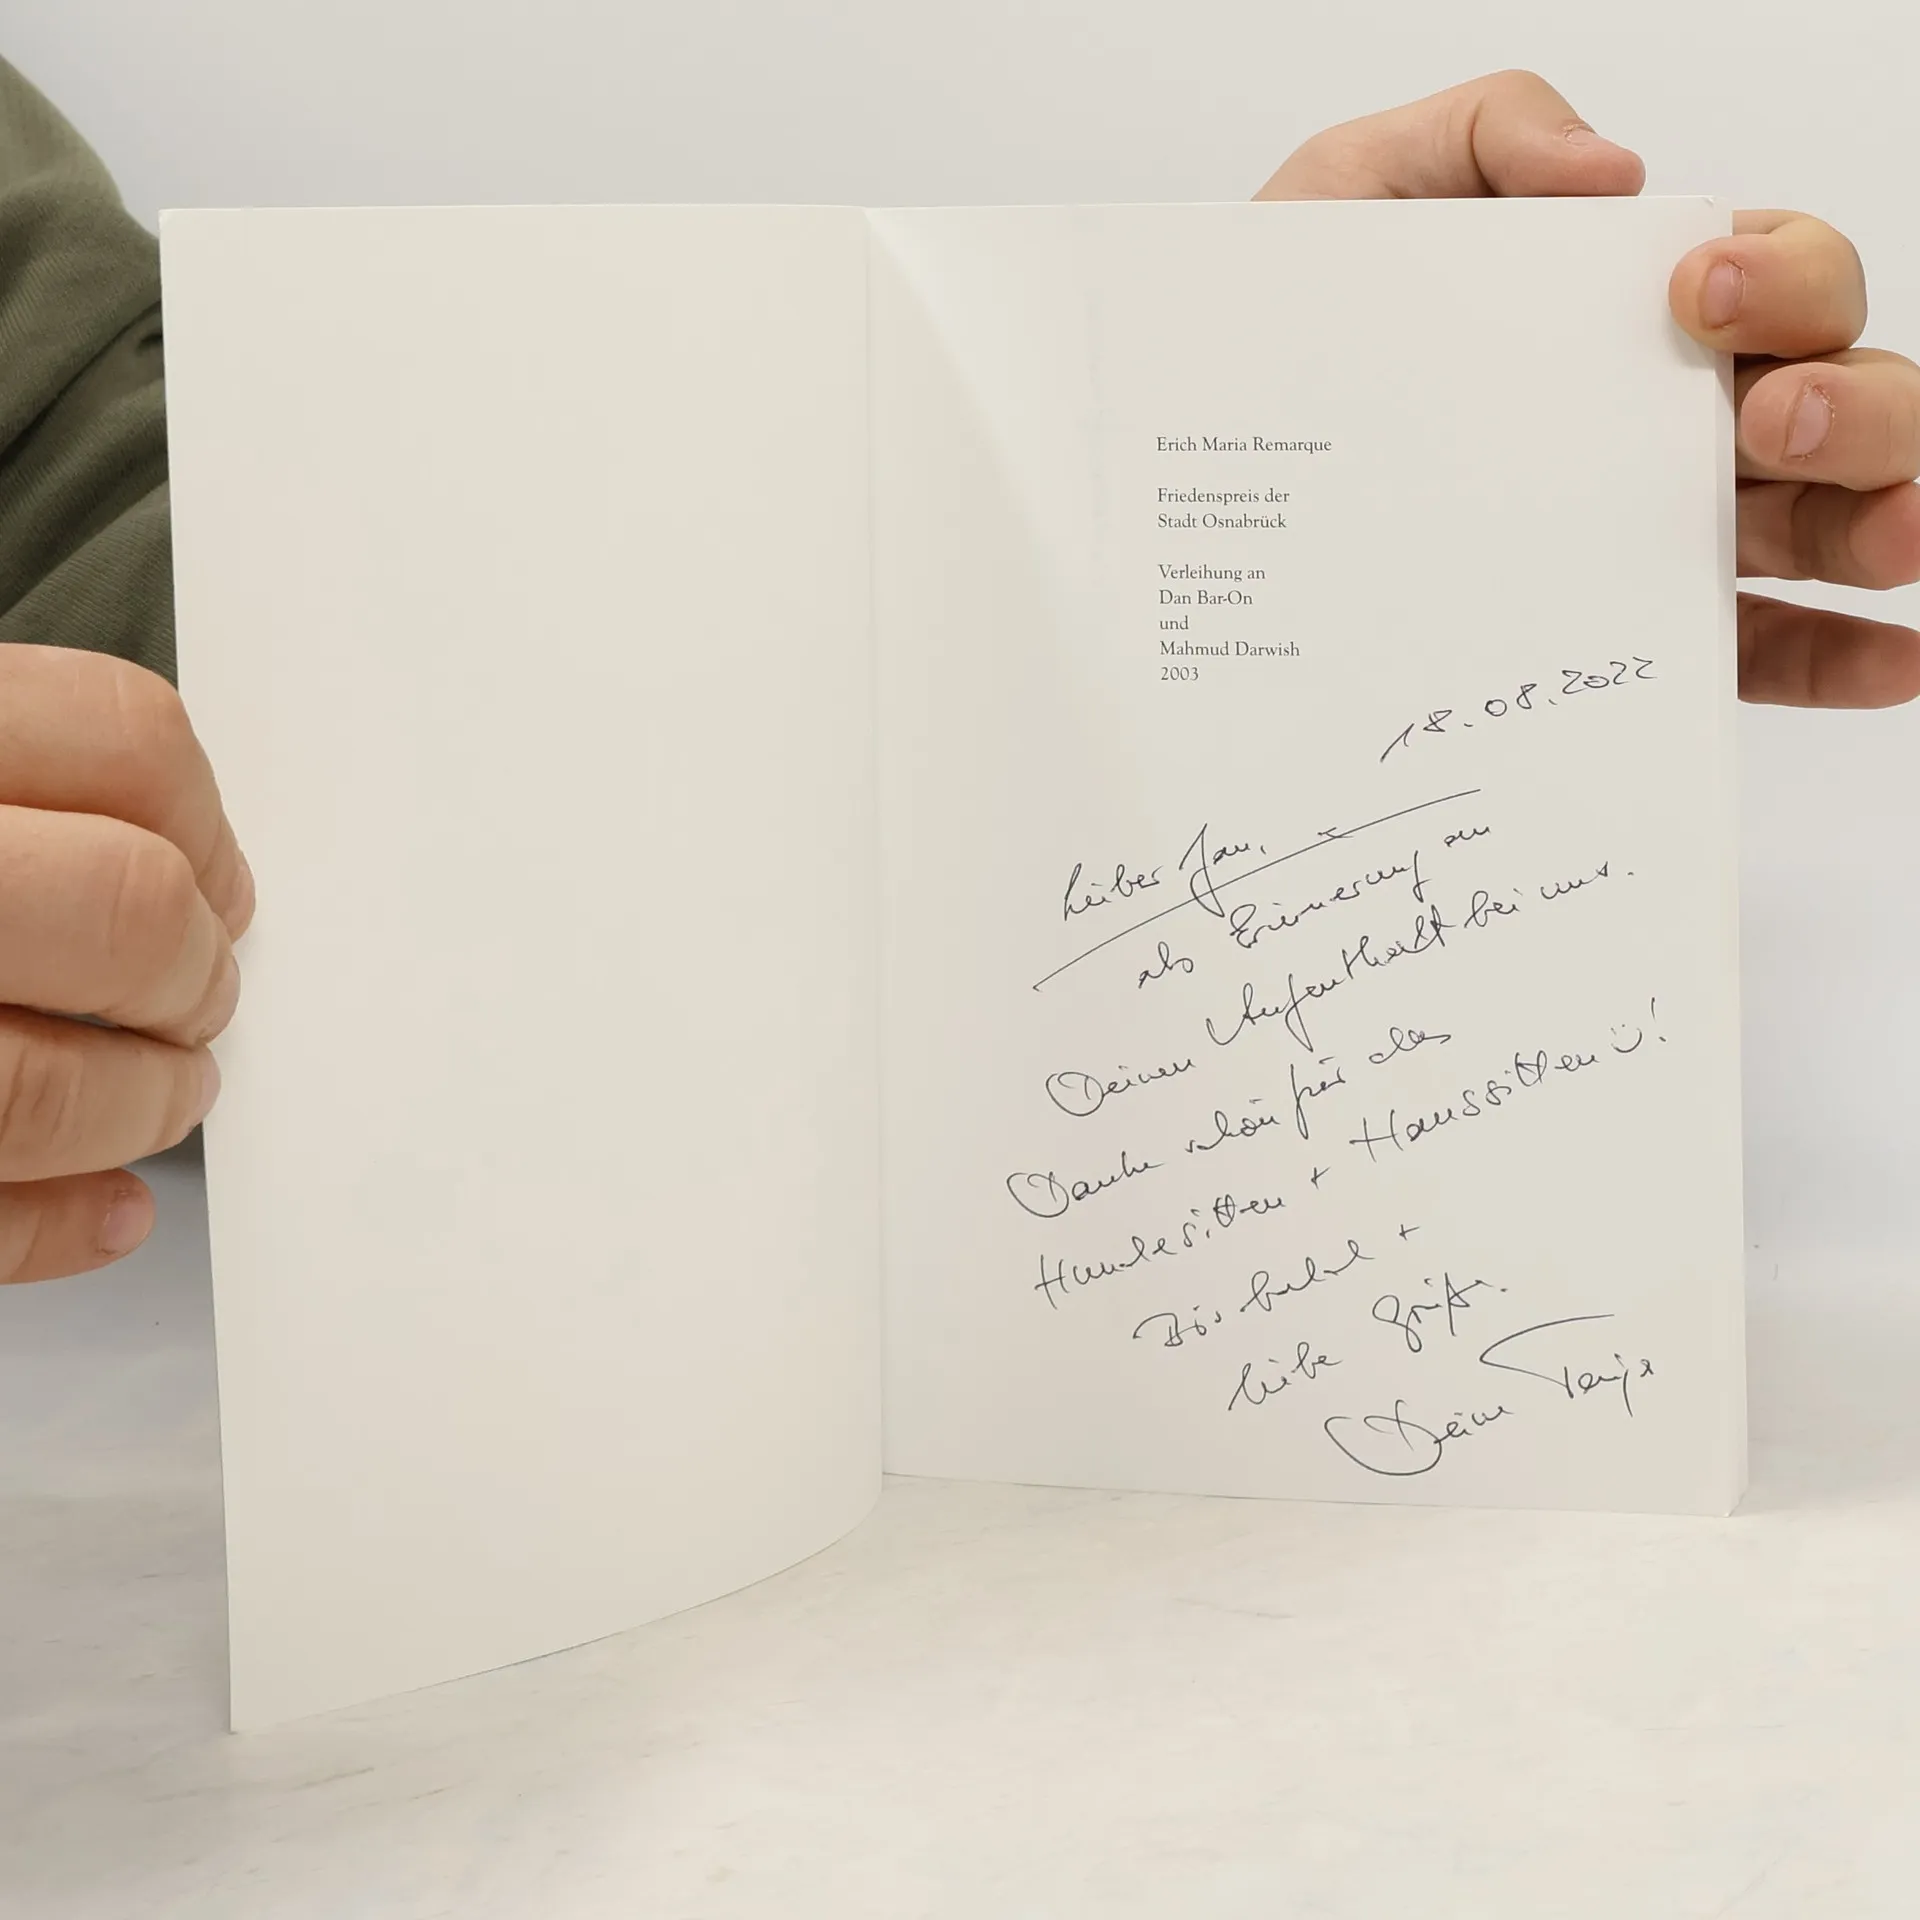 Erich Maria Remarque
Friedenspreis der
Stadt Osnabrück
Verleihung an
Dan Bar-On
und
Mahmud Darwish
2003
18.08.2022
Lieber Jan,
als Erinnerung an
Deinen Aufenthalt bei uns.
Danke schön für das
Hundesitten + Haussitten ü!
Bis bald +
liebe Grüße.
Deine Tanja